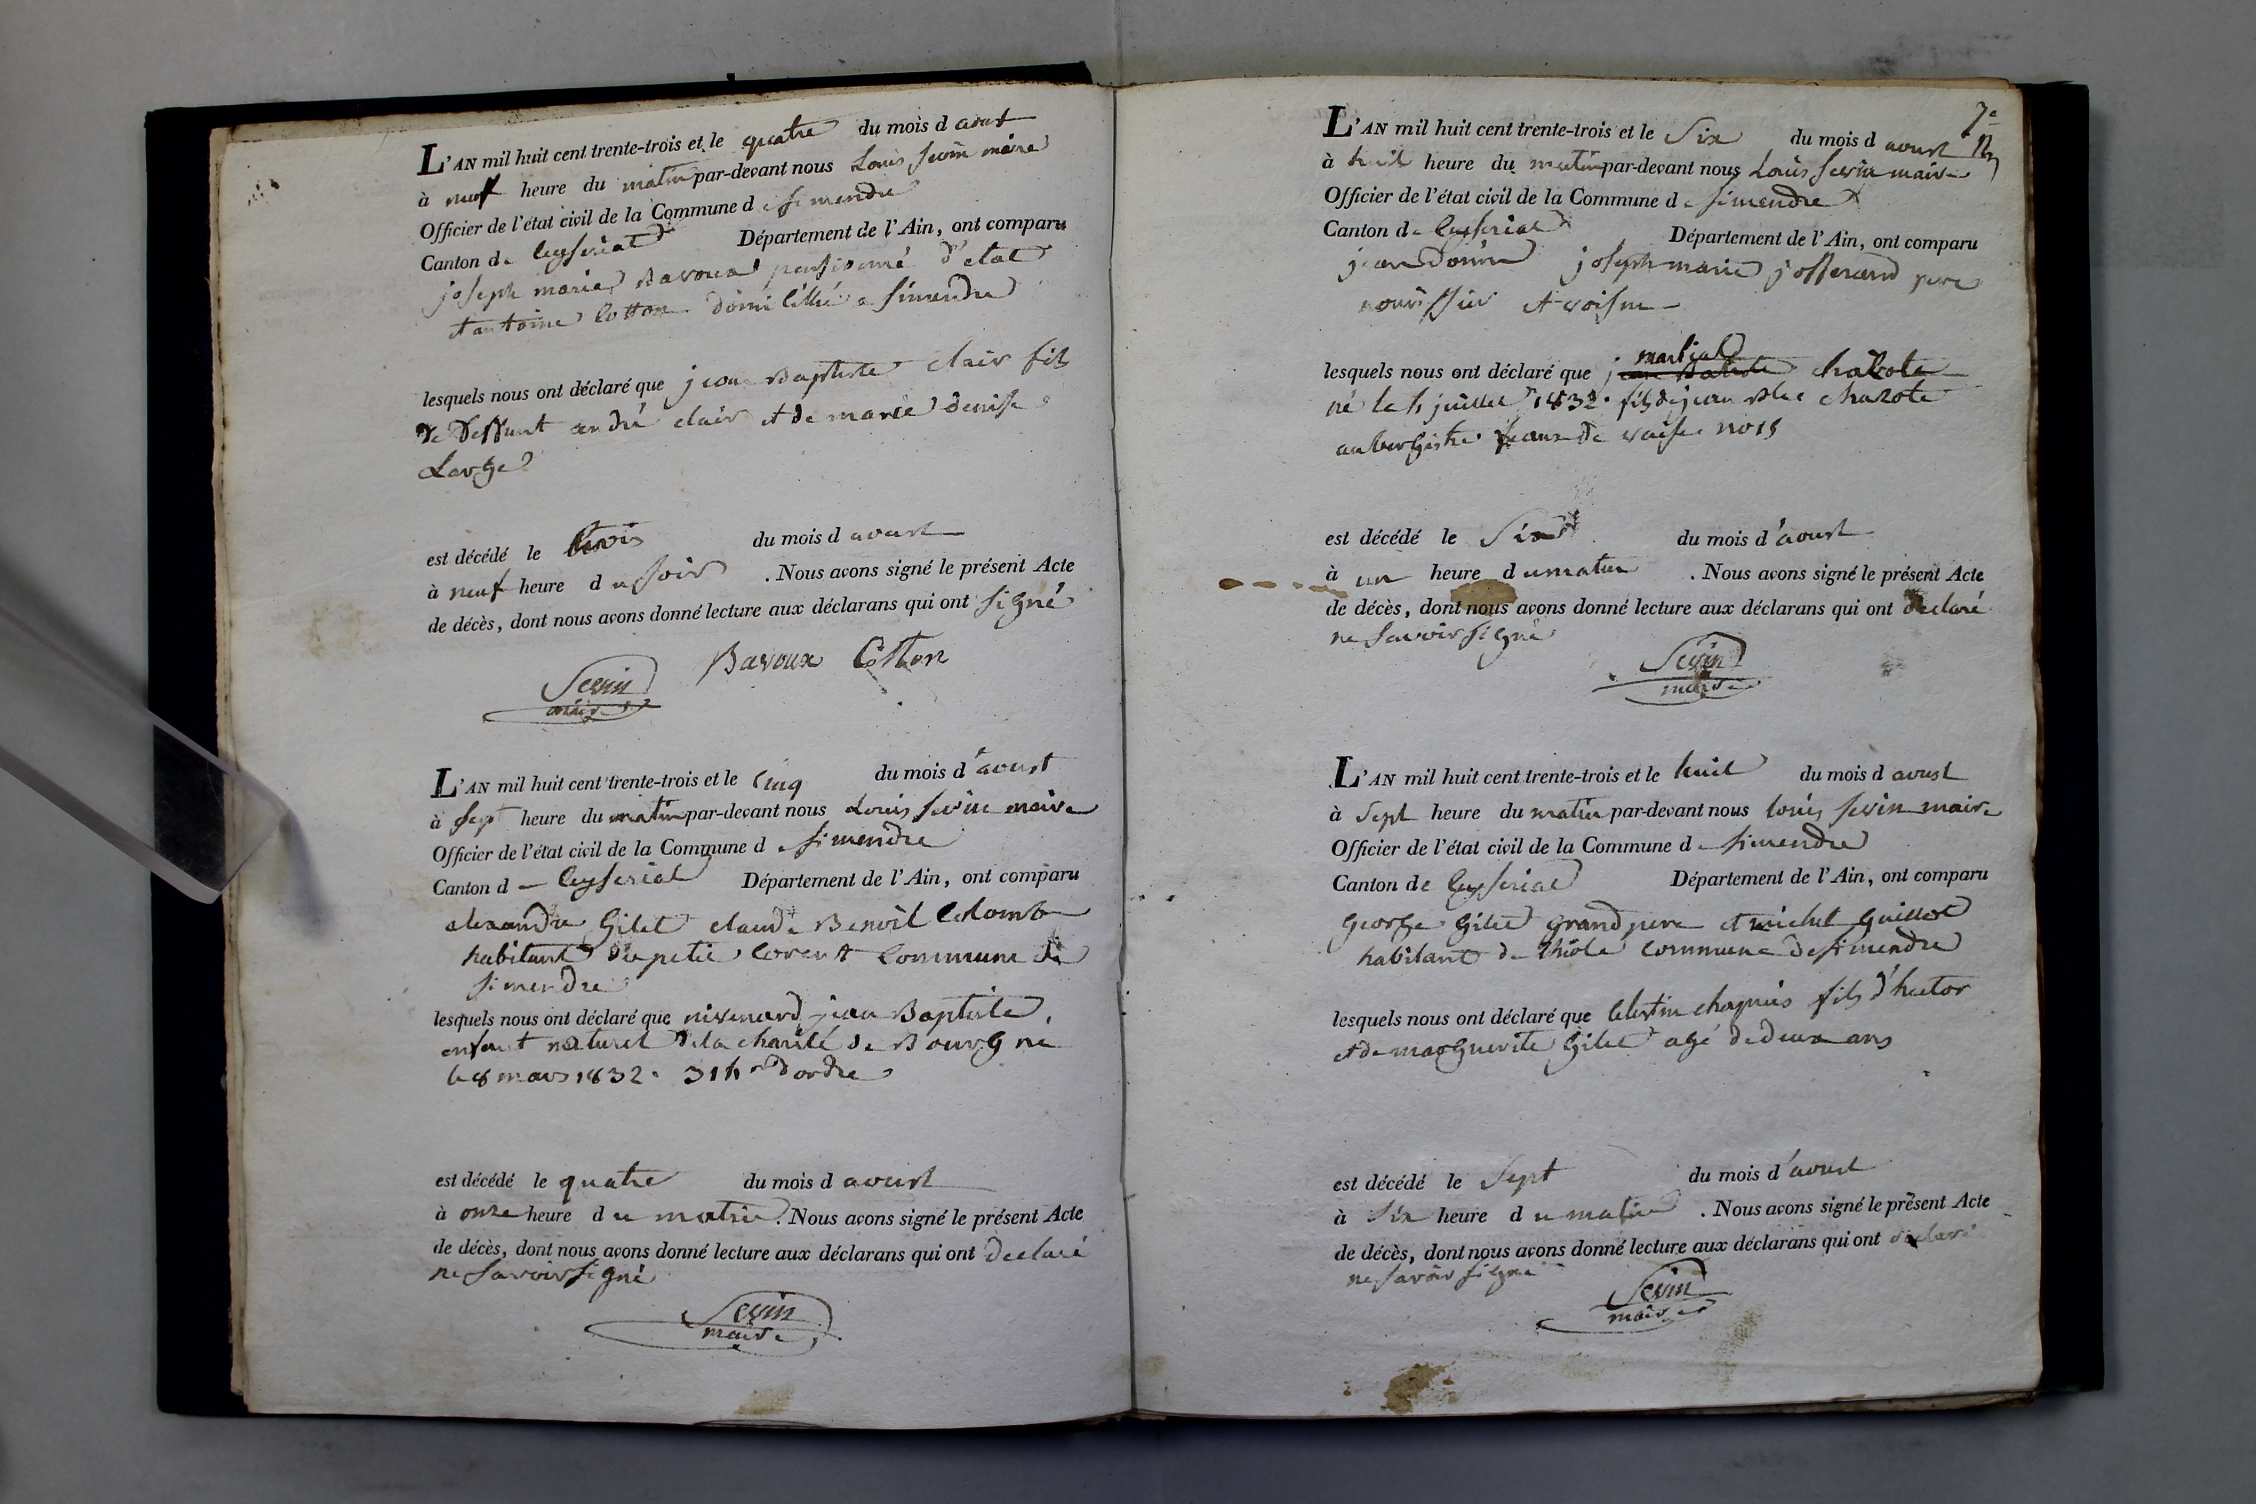 L'AN mil huit cent trente-trois et le quatre du mois d aoust
à neuf heure du matin par-devant nous Louis sevin maire
Officier de l'état civil de la Commune d e simendre
Canton de Ceyseriat Département de l'Ain, ont comparu
joseph marie Bavoux pensionné d'etat
et antoine Cotton domicillié a simendre
lesquels nous ont déclaré que jean Baptiste clair fils
de deffunt andré clair et de marie denise
Large
est décédé le trois du mois d aoust
à neuf heure du soir . Nous avons signé le présent Acte
de décès, dont nous avons donné lecture aux déclarans qui ont signé
Bavoux Cotton
Sevin
maire
L'AN mil huit cent trente-trois et le cinq du mois d'aoust
à sept heure du matin par-devant nous Louis sevin maire
Officier de l'état civil de la Commune d e simendre
Canton de Ceyseriat Département de l'Ain, ont comparu
alexandre Gilet claude Benoit Colomb
habitant du petit Corent Commune de
simendre
lesquels nous ont déclaré que jean Baptiste
enfant naturel de la charité de Bourg né
le 8 mars 1832. d'ordre
est décédé le quatre du mois d aoust
à onze heure du matin . Nous avons signé le présent Acte
de décès, dont nous avons donné lecture aux déclarans qui ont declaré
ne savoir signé
Sevin
maire
7e
L'AN mil huit cent trente-trois et le six du mois d aoust
à huit heure du matin par-devant nous Louis sevin maire
Officier de l'état civil de la Commune de simendre
Canton de Ceyseriat Département de l'Ain, ont comparu
joseph marie josserand pere
nourissier et voisin
martial
lesquels nous ont déclaré que chavote
né le 4 juillet 1832. fils de jean Bte chavote
aubergiste de vaise no 15
est décédé le six du mois d'aoust
à un heure du matin . Nous avons signé le présent Acte
de décès, dont nous avons donné lecture aux déclarans qui ont declaré
ne savoir signé
Sevin
maire
L'AN mil huit cent trente-trois et le huit du mois d aoust
à sept heure du matin par-devant nous louis sevin maire
Officier de l'état civil de la Commune de simendre
Canton de Ceyseriat Département de l'Ain, ont comparu
George Gilet grand pere et michel Guillot
habitant de thiole commune de simendre
lesquels nous ont déclaré que Celestin chapuis fils d'hector
et de marguerite Gilet agé de deux ans
est décédé le sept du mois d'aoust
à six heure du matin . Nous avons signé le présent Acte
de décès, dont nous avons donné lecture aux déclarans qui ont declaré
ne savoir signé
Sevin
maire